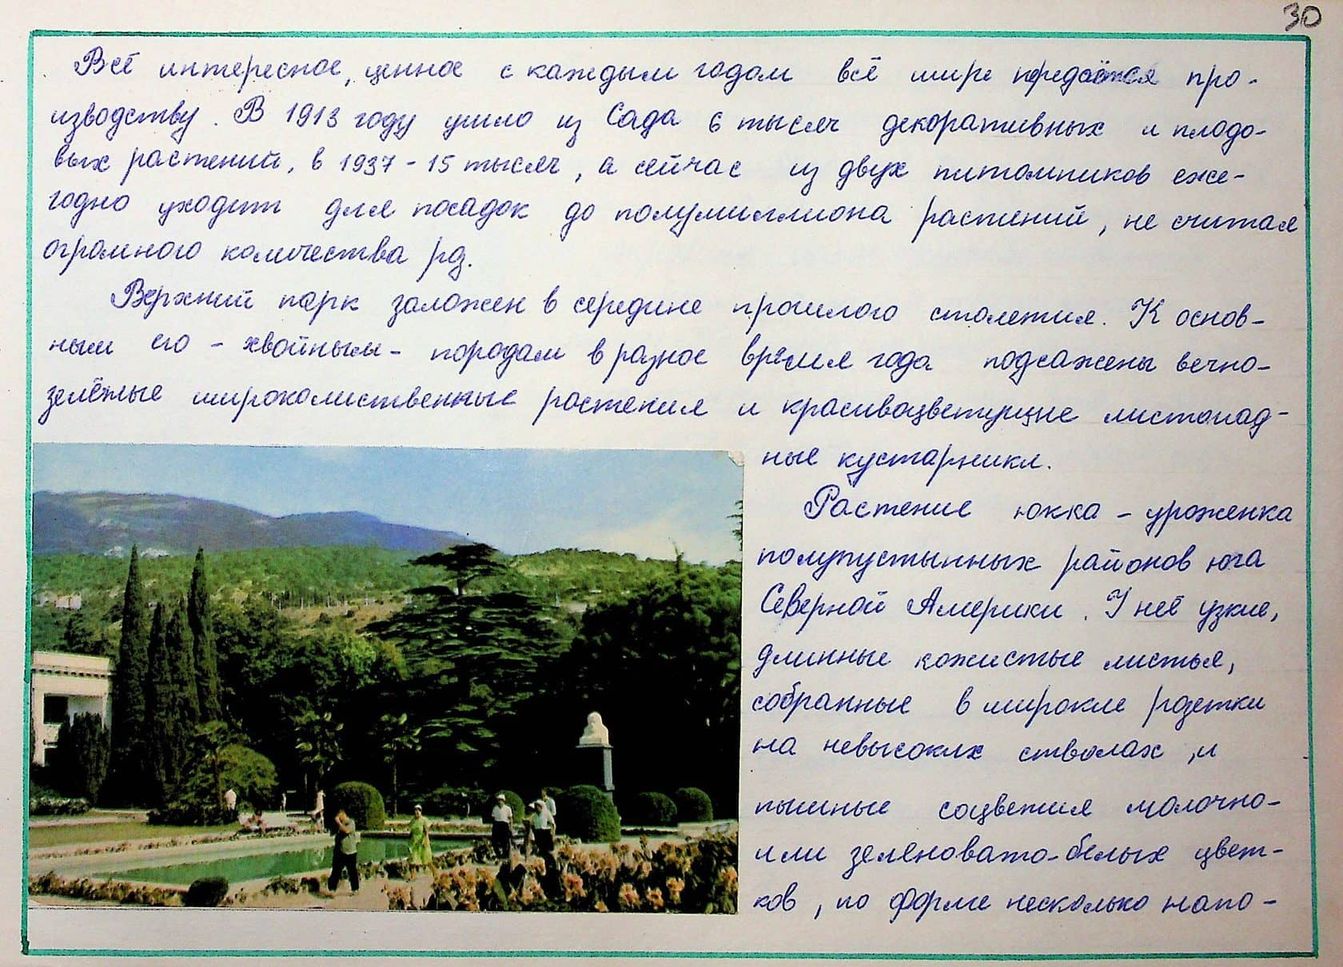 30
Всё интересное, ценное с каждым годом всё шире передаётся про-
изводству. В 1913 году ушло из Сада 6 тысяч декоративных и плодо-
вых растений, в 1937 - 15 тысяч, а сейчас из двух питомников еже-
годно уходит для посадок до полумиллиона растений, не считая
огромного количества
Верхний парк заложен в середине прошлого столетия. К основ-
ным его - хвойным - породам в разное время года подсажены вечно-
зелёные широколиственные растения и красивоцветущие листопад-
ные кустарники.
Растение юкка - уроженка
полупустынных районов юга
Северной Америки. У неё узкие,
длинные кожистые листья,
собранные в широкие розетки
на невысоких стволах, и
пышные соцветия молочно-
или зеленовато-белых цвет-
ков, по форме несколько напо-